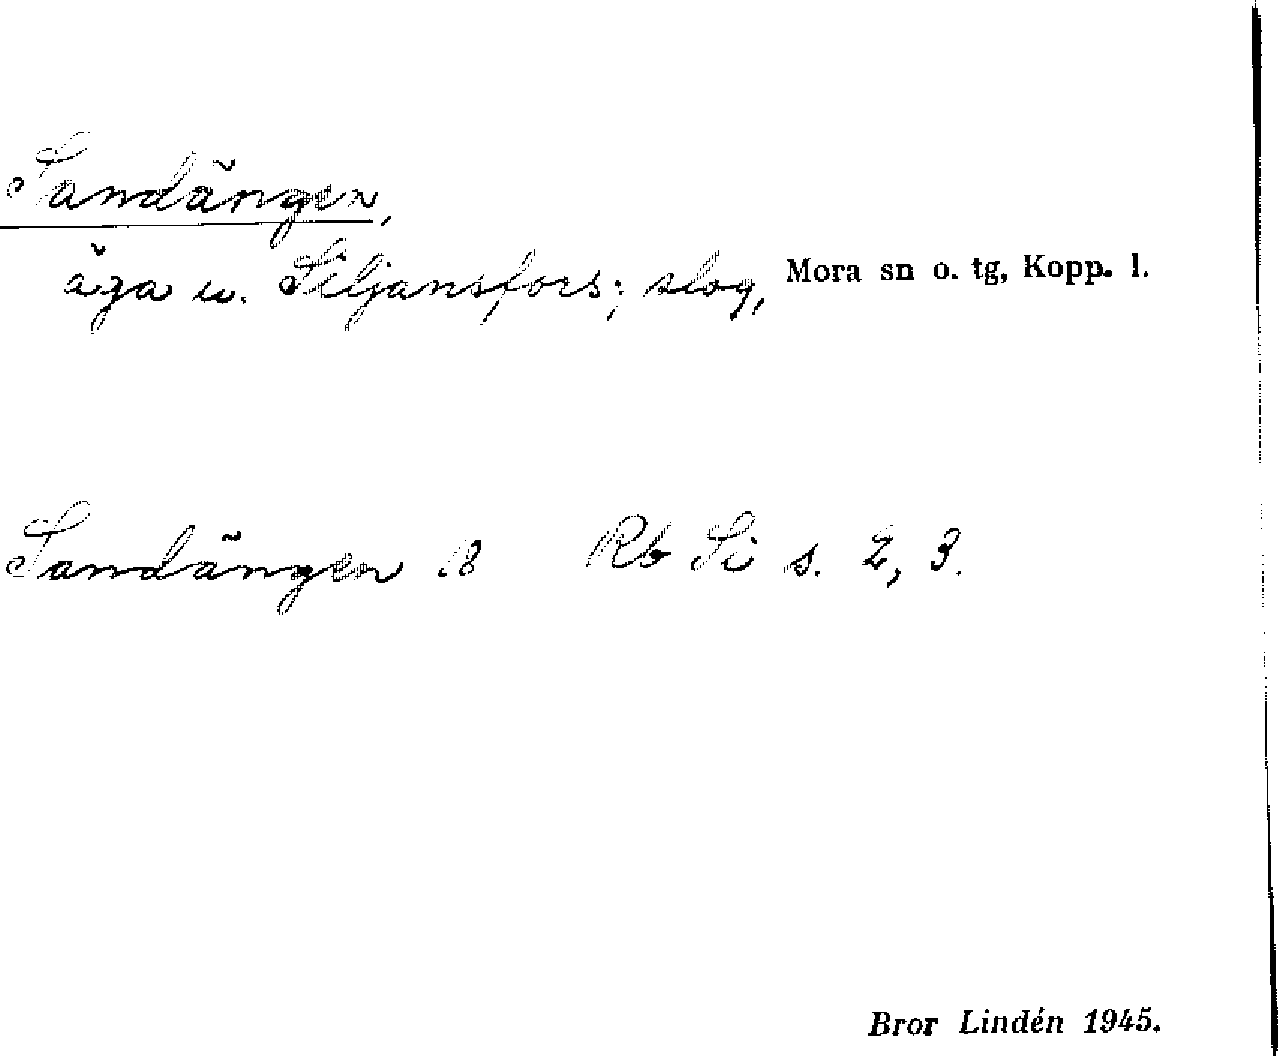 Sandängen,
äga u. Siljansfors; slog, Mora sn o. tg, Kopp. l.
Sandängen 18 Rb Si s. 2, 3.
Bror Lindén 1945.